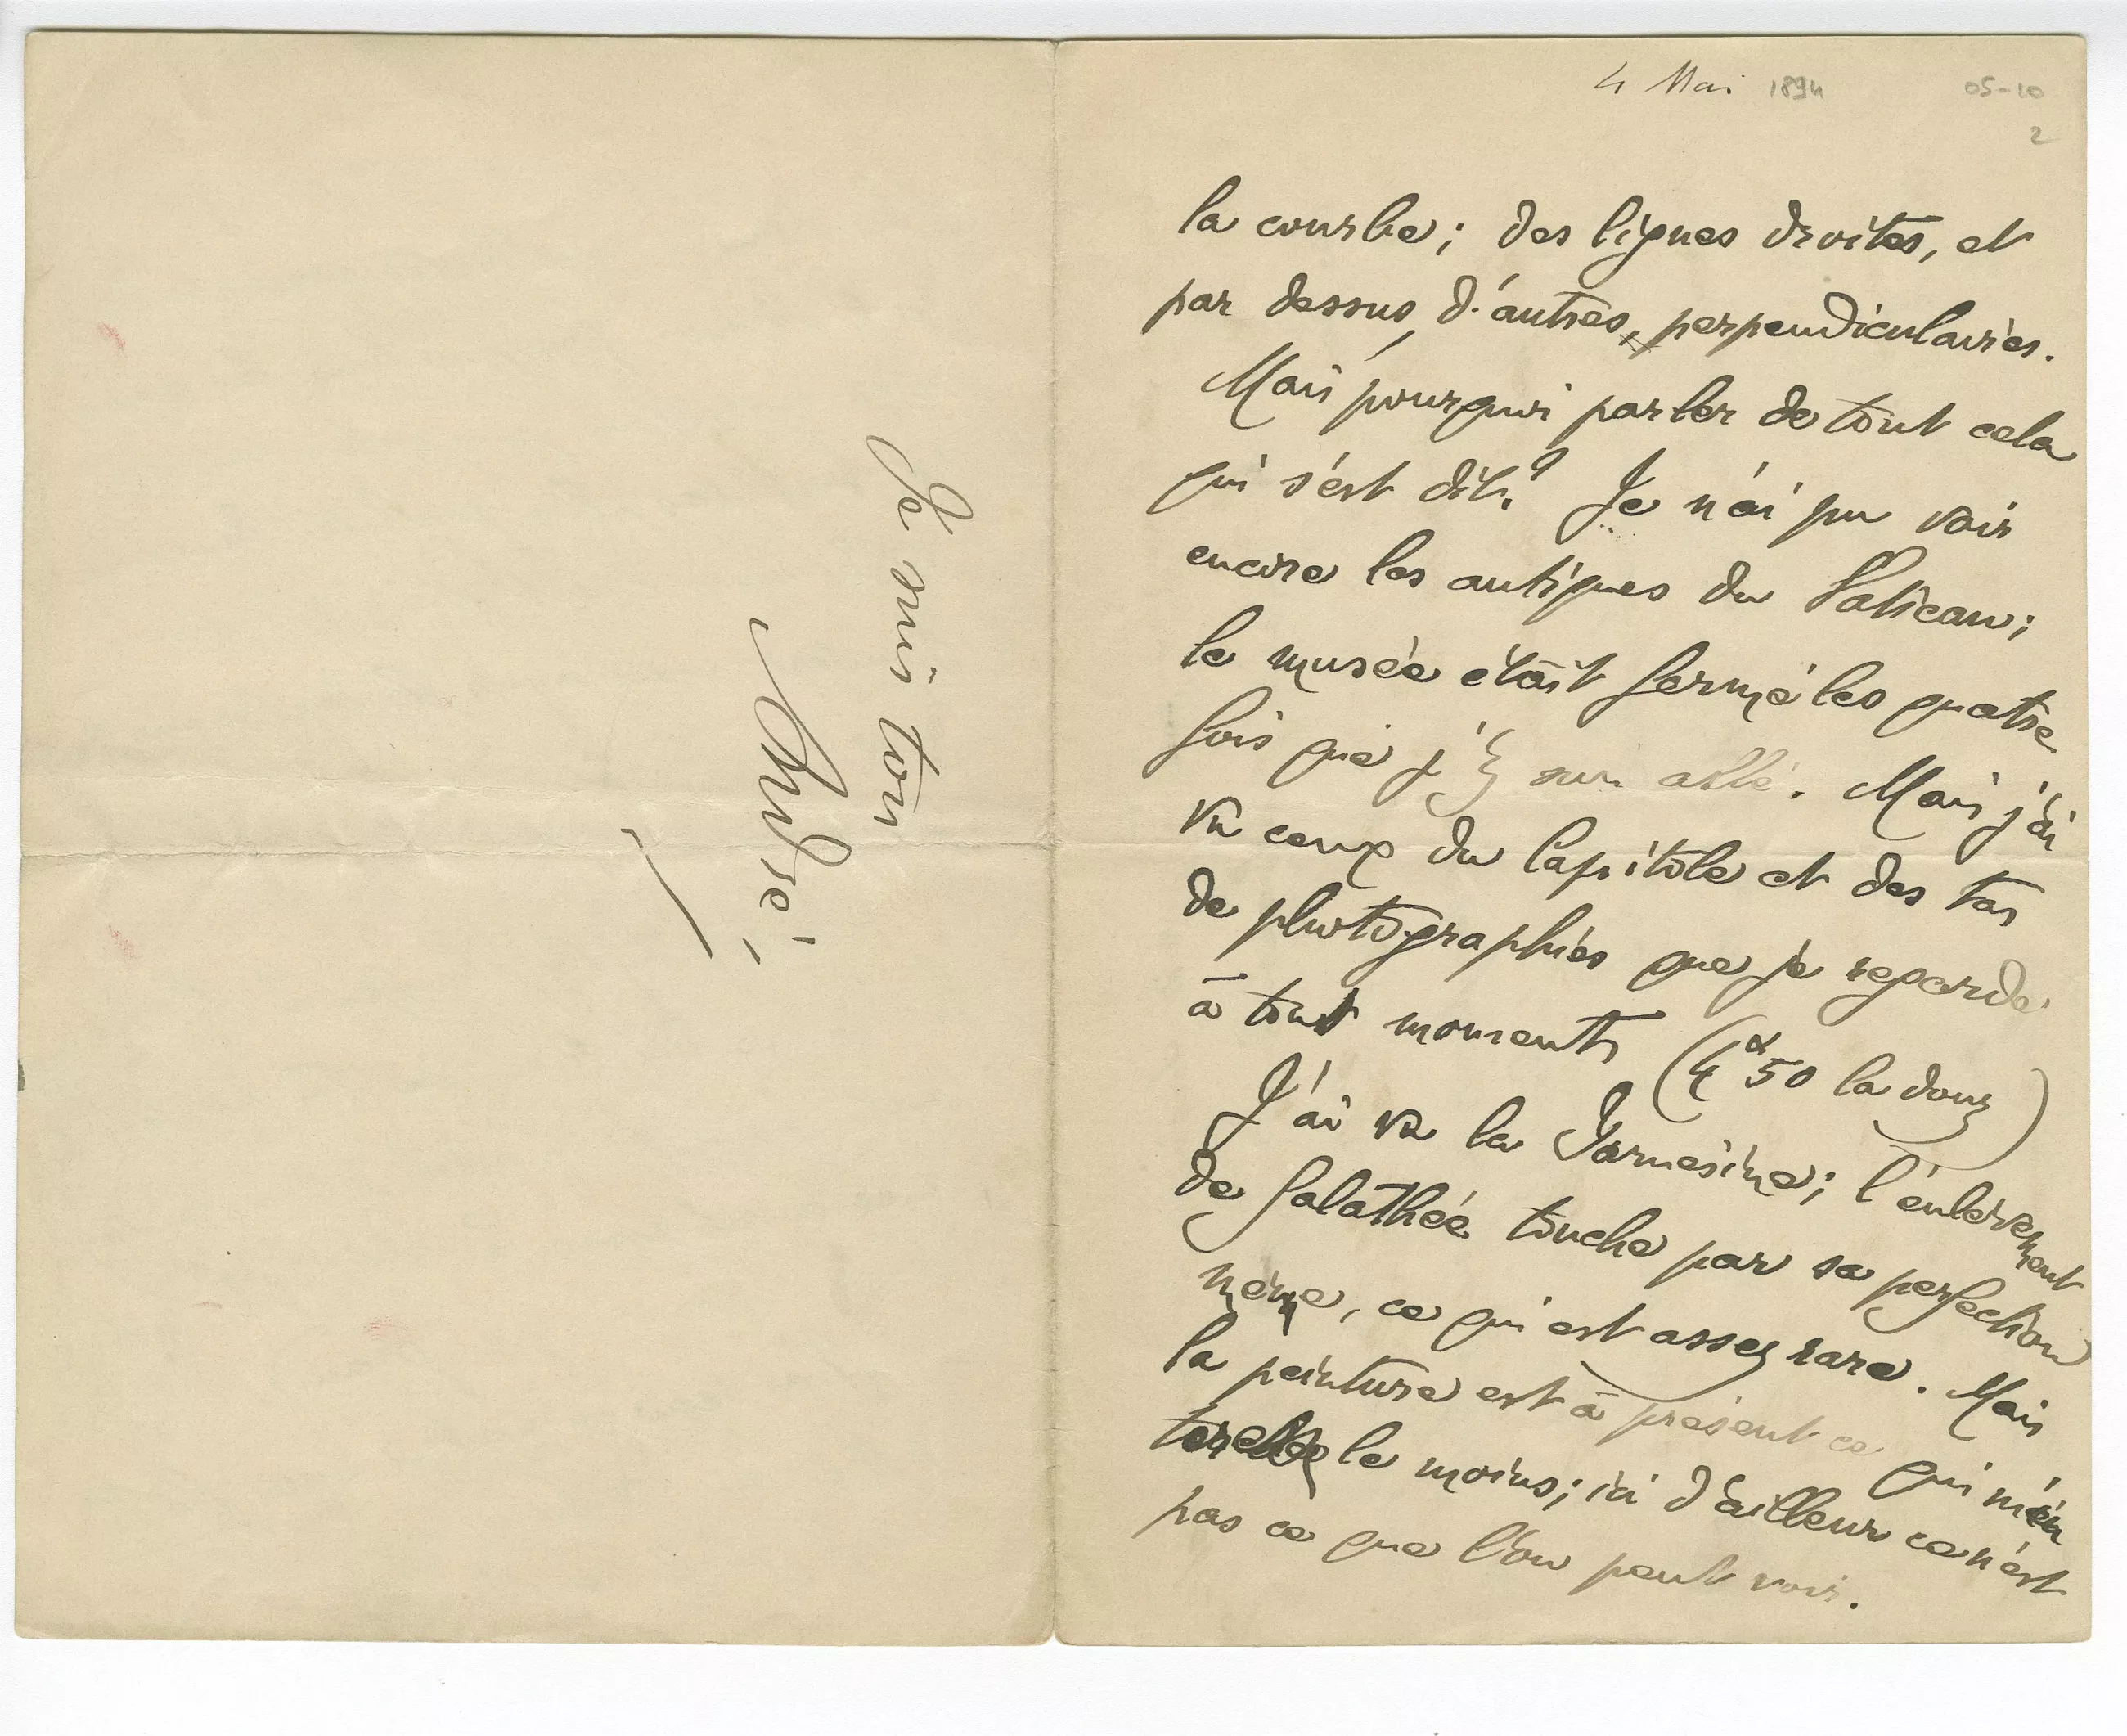 4 Mai 1894
05-10
2
la courbe; des lignes droites, et
par dessus, d'autres, perpendiculaires.
Mais pourquoi parler de tout cela
qui s'est dit? Je n'ai pu voir
encore les antiques du Vatican;
le musée était fermé les quatre
fois que j'y suis allé. Mais j'ai
vu ceux du Capitole et des tas
de photographies que je regarde
à tout moments (4 50 la douz)
J'ai vu la Farnésine; l'enlèvement
de Galathée touche par sa perfection
même, ce qui est assez rare. Mais
la peinture est à présent ce qui m'in
téresse le moins; ici d'ailleurs ce n'est
pas ce que l'on peut voir.
Je suis ton
André